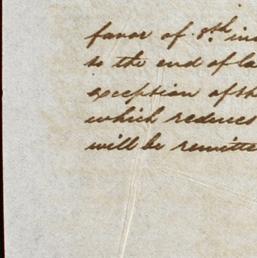 favor of 8th ins
to the end of la
exception of th
which reduces
will be remitte